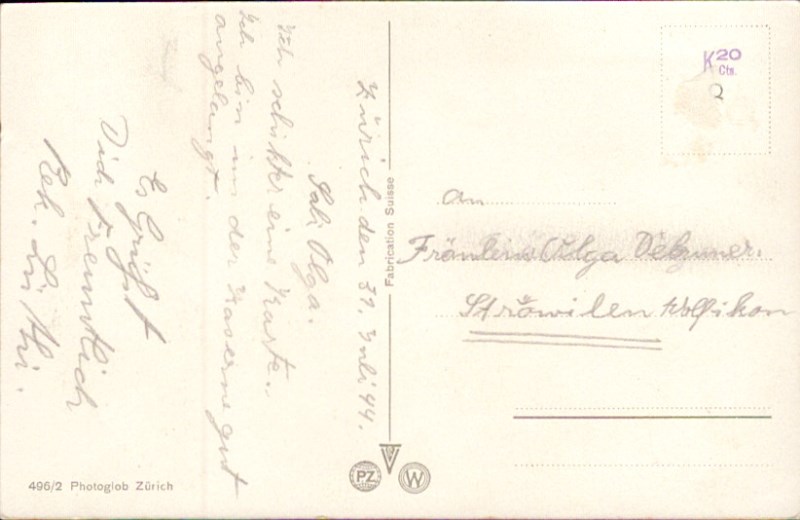 Zürich den 31. Juli 44.
Sali Olga.
Ich schikte eine Karte.
Ich bin in der Kaserne gut
angelangt.
Es Grüßt
Dich freuntlich
Rek. Lüthi.
An
Fräulein Olga
Ströwilen Wolfikon
K 20
Cts.
Fabrication Suisse
PZ
W
496/2 Photoglob Zürich